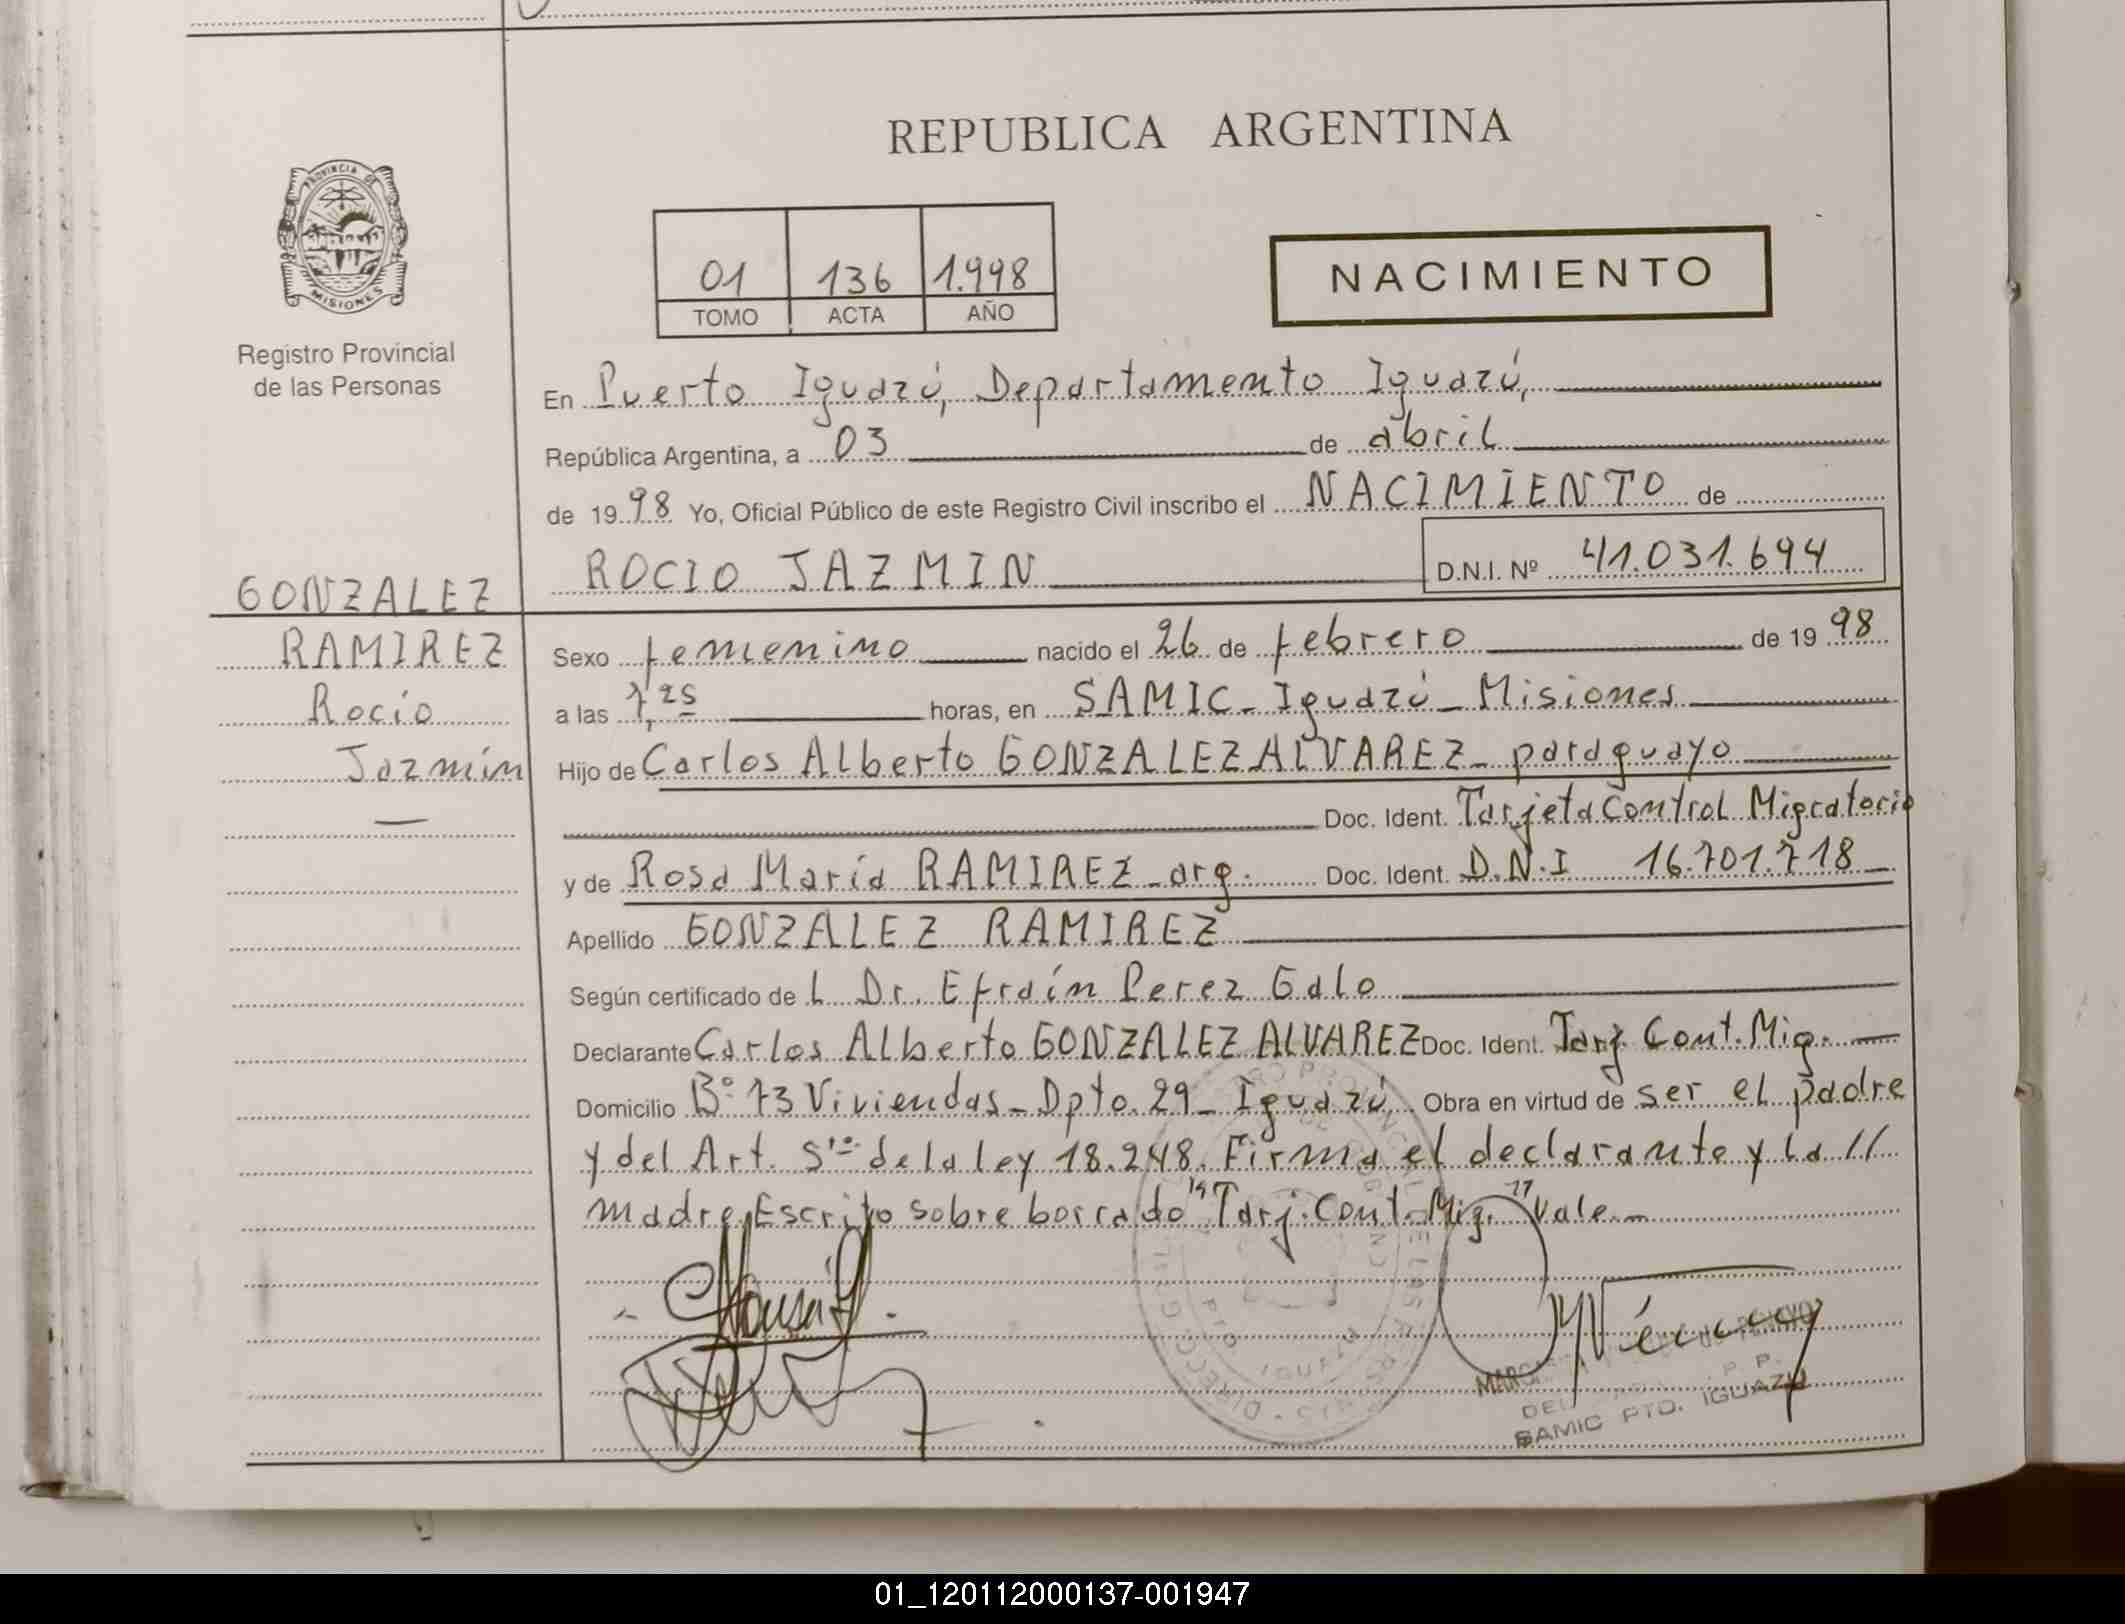 REPUBLICA ARGENTINA
PROVINCIA DE
MISIONES
Registro Provincial
de las Personas
01 136 1.998
TOMO ACTA AÑO
NACIMIENTO
En Puerto Iguazú, Departamento Iguazú,
República Argentina, a 03 de abril
de 1998 Yo, Oficial Público de este Registro Civil inscribo el NACIMIENTO de
ROCIO JAZMIN D.N.I. Nº 41.031.694
GONZALEZ
RAMIREZ
Rocío
Jazmín
Sexo femenino nacido el 26 de febrero de 1998
a las 7,25 horas, en SAMIC - Iguazú - Misiones
Hijo de Carlos Alberto GONZALEZ ALVAREZ - paraguayo
Doc. Ident. Tarjeta Control Migratorio
y de Rosa María RAMIREZ - arg. Doc. Ident. D.N.I 16.701.718
Apellido GONZALEZ RAMIREZ
Según certificado de L Dr. Efraín Perez Galo
Declarante Carlos Alberto GONZALEZ ALVAREZ Doc. Ident. Tarj Cont. Mig.
Domicilio Bº 73 Viviendas - Dpto. 29 - Iguazú Obra en virtud de ser el padre
y del Art. 5to de la ley 18.248. Firma el declarante y la //
madre. Escrito sobre borrado "Tarj. Cont. Mig." Vale -
SAMIC PTO. IGUAZU
01_120112000137-001947